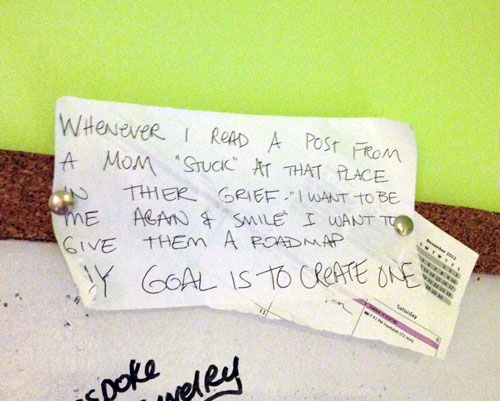 WHENEVER I READ A POST FROM
A MOM "STUCK" AT THAT PLACE
IN THIER GRIEF - "I WANT TO BE
ME AGAN & SMILE" I WANT TO
GIVE THEM A ROADMAP
MY GOAL IS TO CREATE ONE
November 2012
Saturday